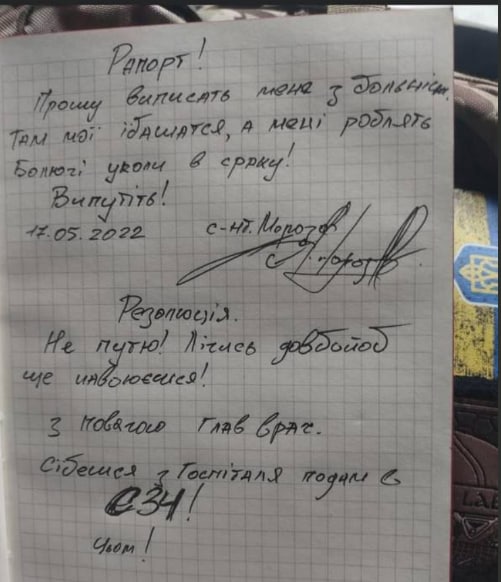 Рапорт!
Прошу виписать мене з больніци.
Там мої їбашатся, а мені роблять
Болючі уколи в сраку!
Випутіть!
17.05.2022 с-нт. Морозов
Резолюція.
Не путю! Лічись довбойоб
ще навоюєшся!
З повагою глав врач.
Сібешся з Госпіталя подам в
СЗЧ!
Чьом!